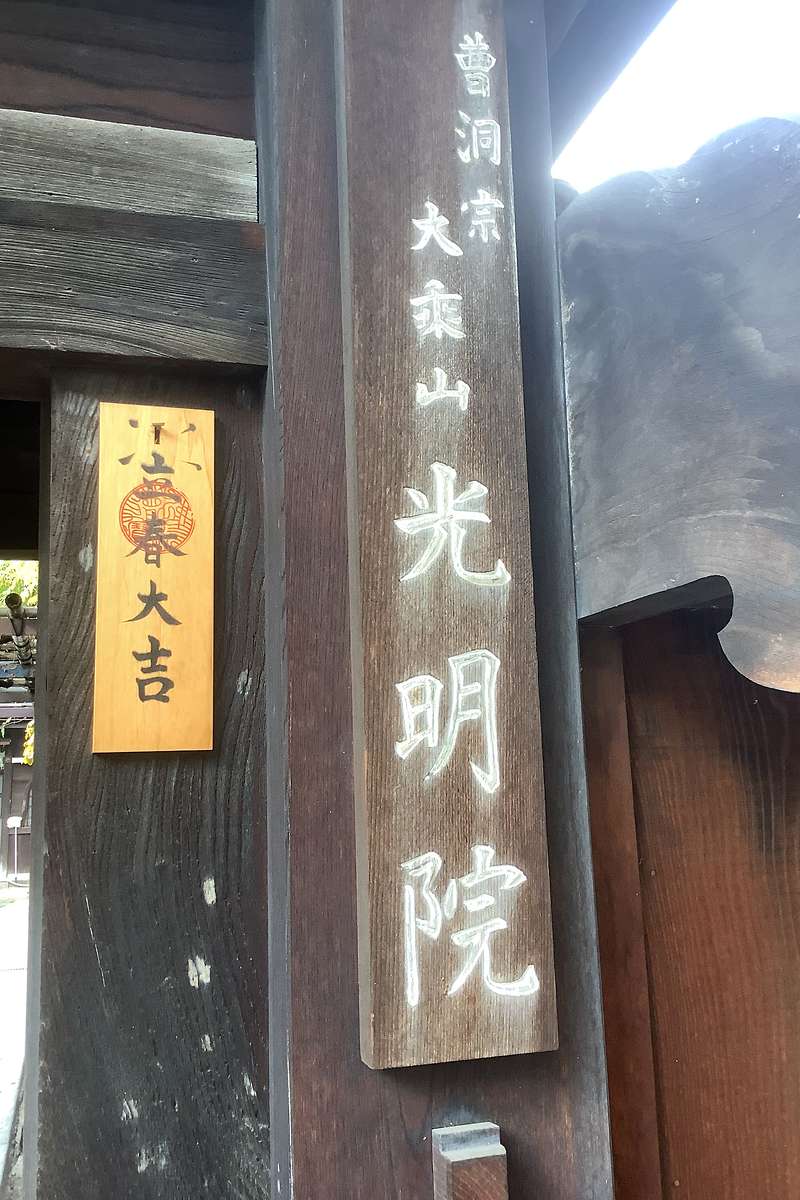 曹洞宗
大乘山
光明院
立春大吉